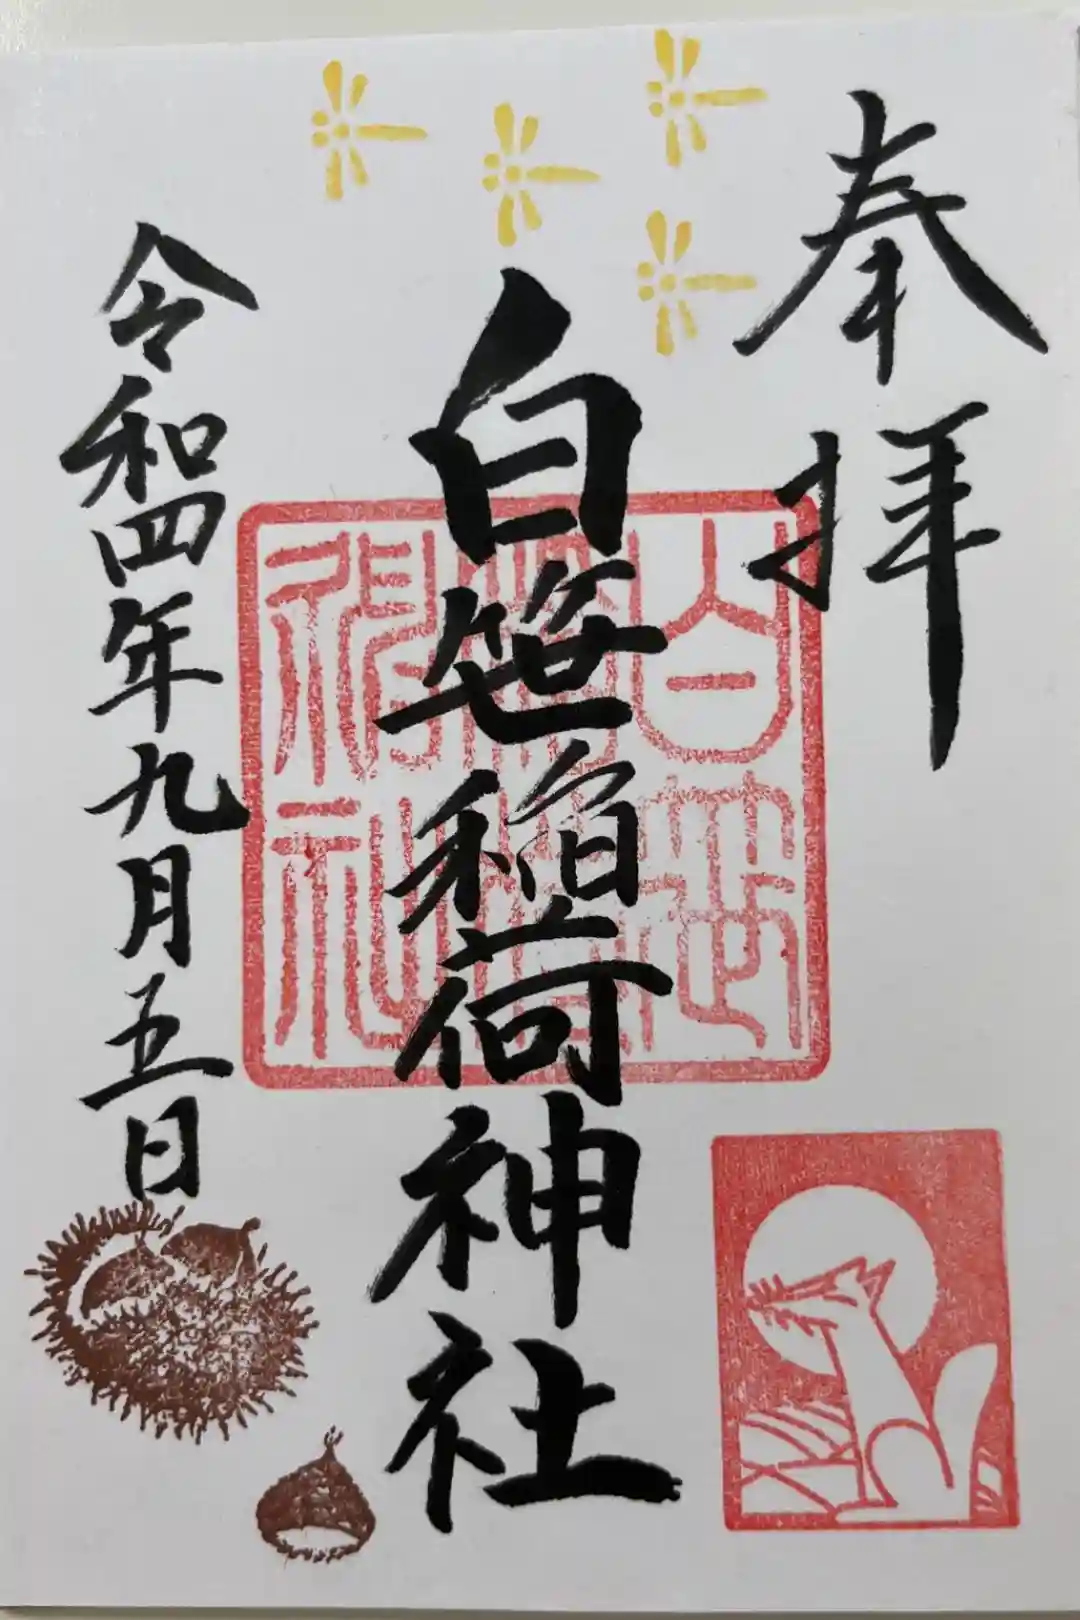 奉拝
白笹稲荷神社
白笹稲荷神社
令和四年九月五日